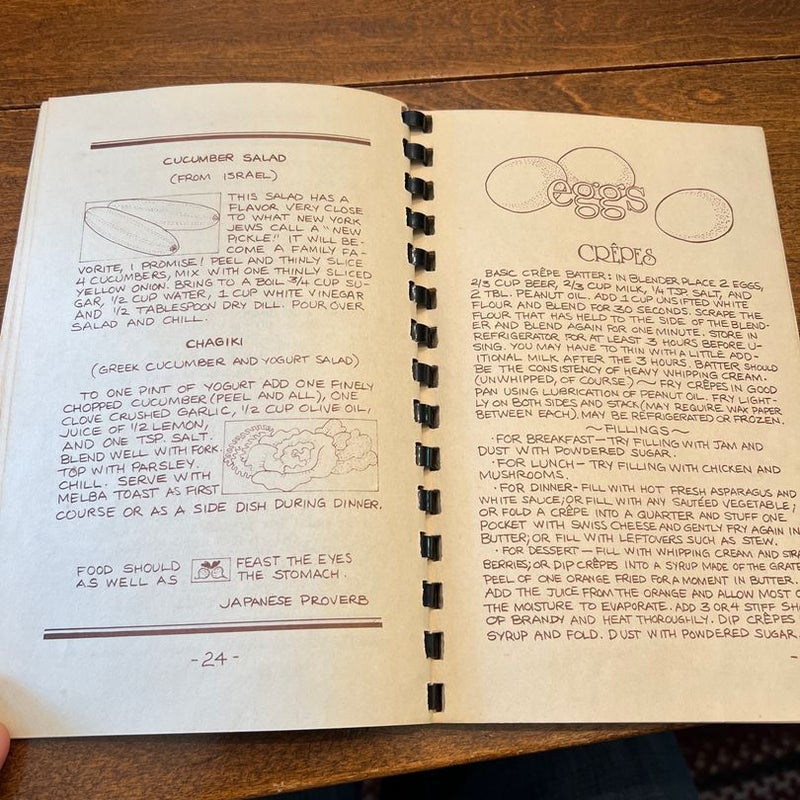 CUCUMBER SALAD
(FROM ISRAEL)
THIS SALAD HAS A
FLAVOR VERY CLOSE
TO WHAT NEW YORK
JEWS CALL A "NEW
PICKLE!" IT WILL BE-
COME A FAMILY FA-
VORITE, I PROMISE! PEEL AND THINLY SLICE
4 CUCUMBERS, MIX WITH ONE THINLY SLICED
YELLOW ONION. BRING TO A BOIL 3/4 CUP SU-
GAR, 1/2 CUP WATER, 1 CUP WHITE VINEGAR
AND 1/2 TABLESPOON DRY DILL. POUR OVER
SALAD AND CHILL.
CHAGIKI
(GREEK CUCUMBER AND YOGURT SALAD)
TO ONE PINT OF YOGURT ADD ONE FINELY
CHOPPED CUCUMBER (PEEL AND ALL), ONE
CLOVE CRUSHED GARLIC, 1/2 CUP OLIVE OIL,
JUICE OF 1/2 LEMON,
AND ONE TSP. SALT.
BLEND WELL WITH FORK.
TOP WITH PARSLEY.
CHILL. SERVE WITH
MELBA TOAST AS FIRST
COURSE OR AS A SIDE DISH DURING DINNER.
FOOD SHOULD FEAST THE EYES
AS WELL AS THE STOMACH.
JAPANESE PROVERB
-24-
eggs
CRÊPES
BASIC CRÊPE BATTER: IN BLENDER PLACE 2 EGGS,
2/3 CUP BEER, 2/3 CUP MILK, 1/4 TSP SALT, AND
2 TBL. PEANUT OIL. ADD 1 CUP UNSIFTED WHITE
FLOUR AND BLEND FOR 30 SECONDS. SCRAPE THE
FLOUR THAT HAS HELD TO THE SIDE OF THE BLEND-
ER AND BLEND AGAIN FOR ONE MINUTE. STORE IN
REFRIGERATOR FOR AT LEAST 3 HOURS BEFORE U-
SING. YOU MAY HAVE TO THIN WITH A LITTLE ADD-
ITIONAL MILK AFTER THE 3 HOURS. BATTER SHOULD
BE THE CONSISTENCY OF HEAVY WHIPPING CREAM.
(UNWHIPPED, OF COURSE) ~ FRY CRÊPES IN GOOD
PAN USING LUBRICATION OF PEANUT OIL. FRY LIGHT-
LY ON BOTH SIDES AND STACK (MAY REQUIRE WAX PAPER
BETWEEN EACH). MAY BE REFRIGERATED OR FROZEN.
~FILLINGS~
·FOR BREAKFAST—TRY FILLING WITH JAM AND
DUST WITH POWDERED SUGAR.
·FOR LUNCH—TRY FILLING WITH CHICKEN AND
MUSHROOMS.
·FOR DINNER-FILL WITH HOT FRESH ASPARAGUS AND
WHITE SAUCE; OR FILL WITH ANY SAUTÉED VEGETABLE;
OR FOLD A CRÊPE INTO A QUARTER AND STUFF ONE
POCKET WITH SWISS CHEESE AND GENTLY FRY AGAIN IN
BUTTER; OR FILL WITH LEFTOVERS SUCH AS STEW.
·FOR DESSERT—FILL WITH WHIPPING CREAM AND
BERRIES; OR DIP CRÊPES INTO A SYRUP MADE OF THE
PEEL OF ONE ORANGE FRIED FOR A MOMENT IN BUTTER.
ADD THE JUICE FROM THE ORANGE AND ALLOW MOST
THE MOISTURE TO EVAPORATE. ADD 3 OR 4 STIFF
OF BRANDY AND HEAT THOROUGHLY. DIP CRÊPES
SYRUP AND FOLD. DUST WITH POWDERED SUGAR.